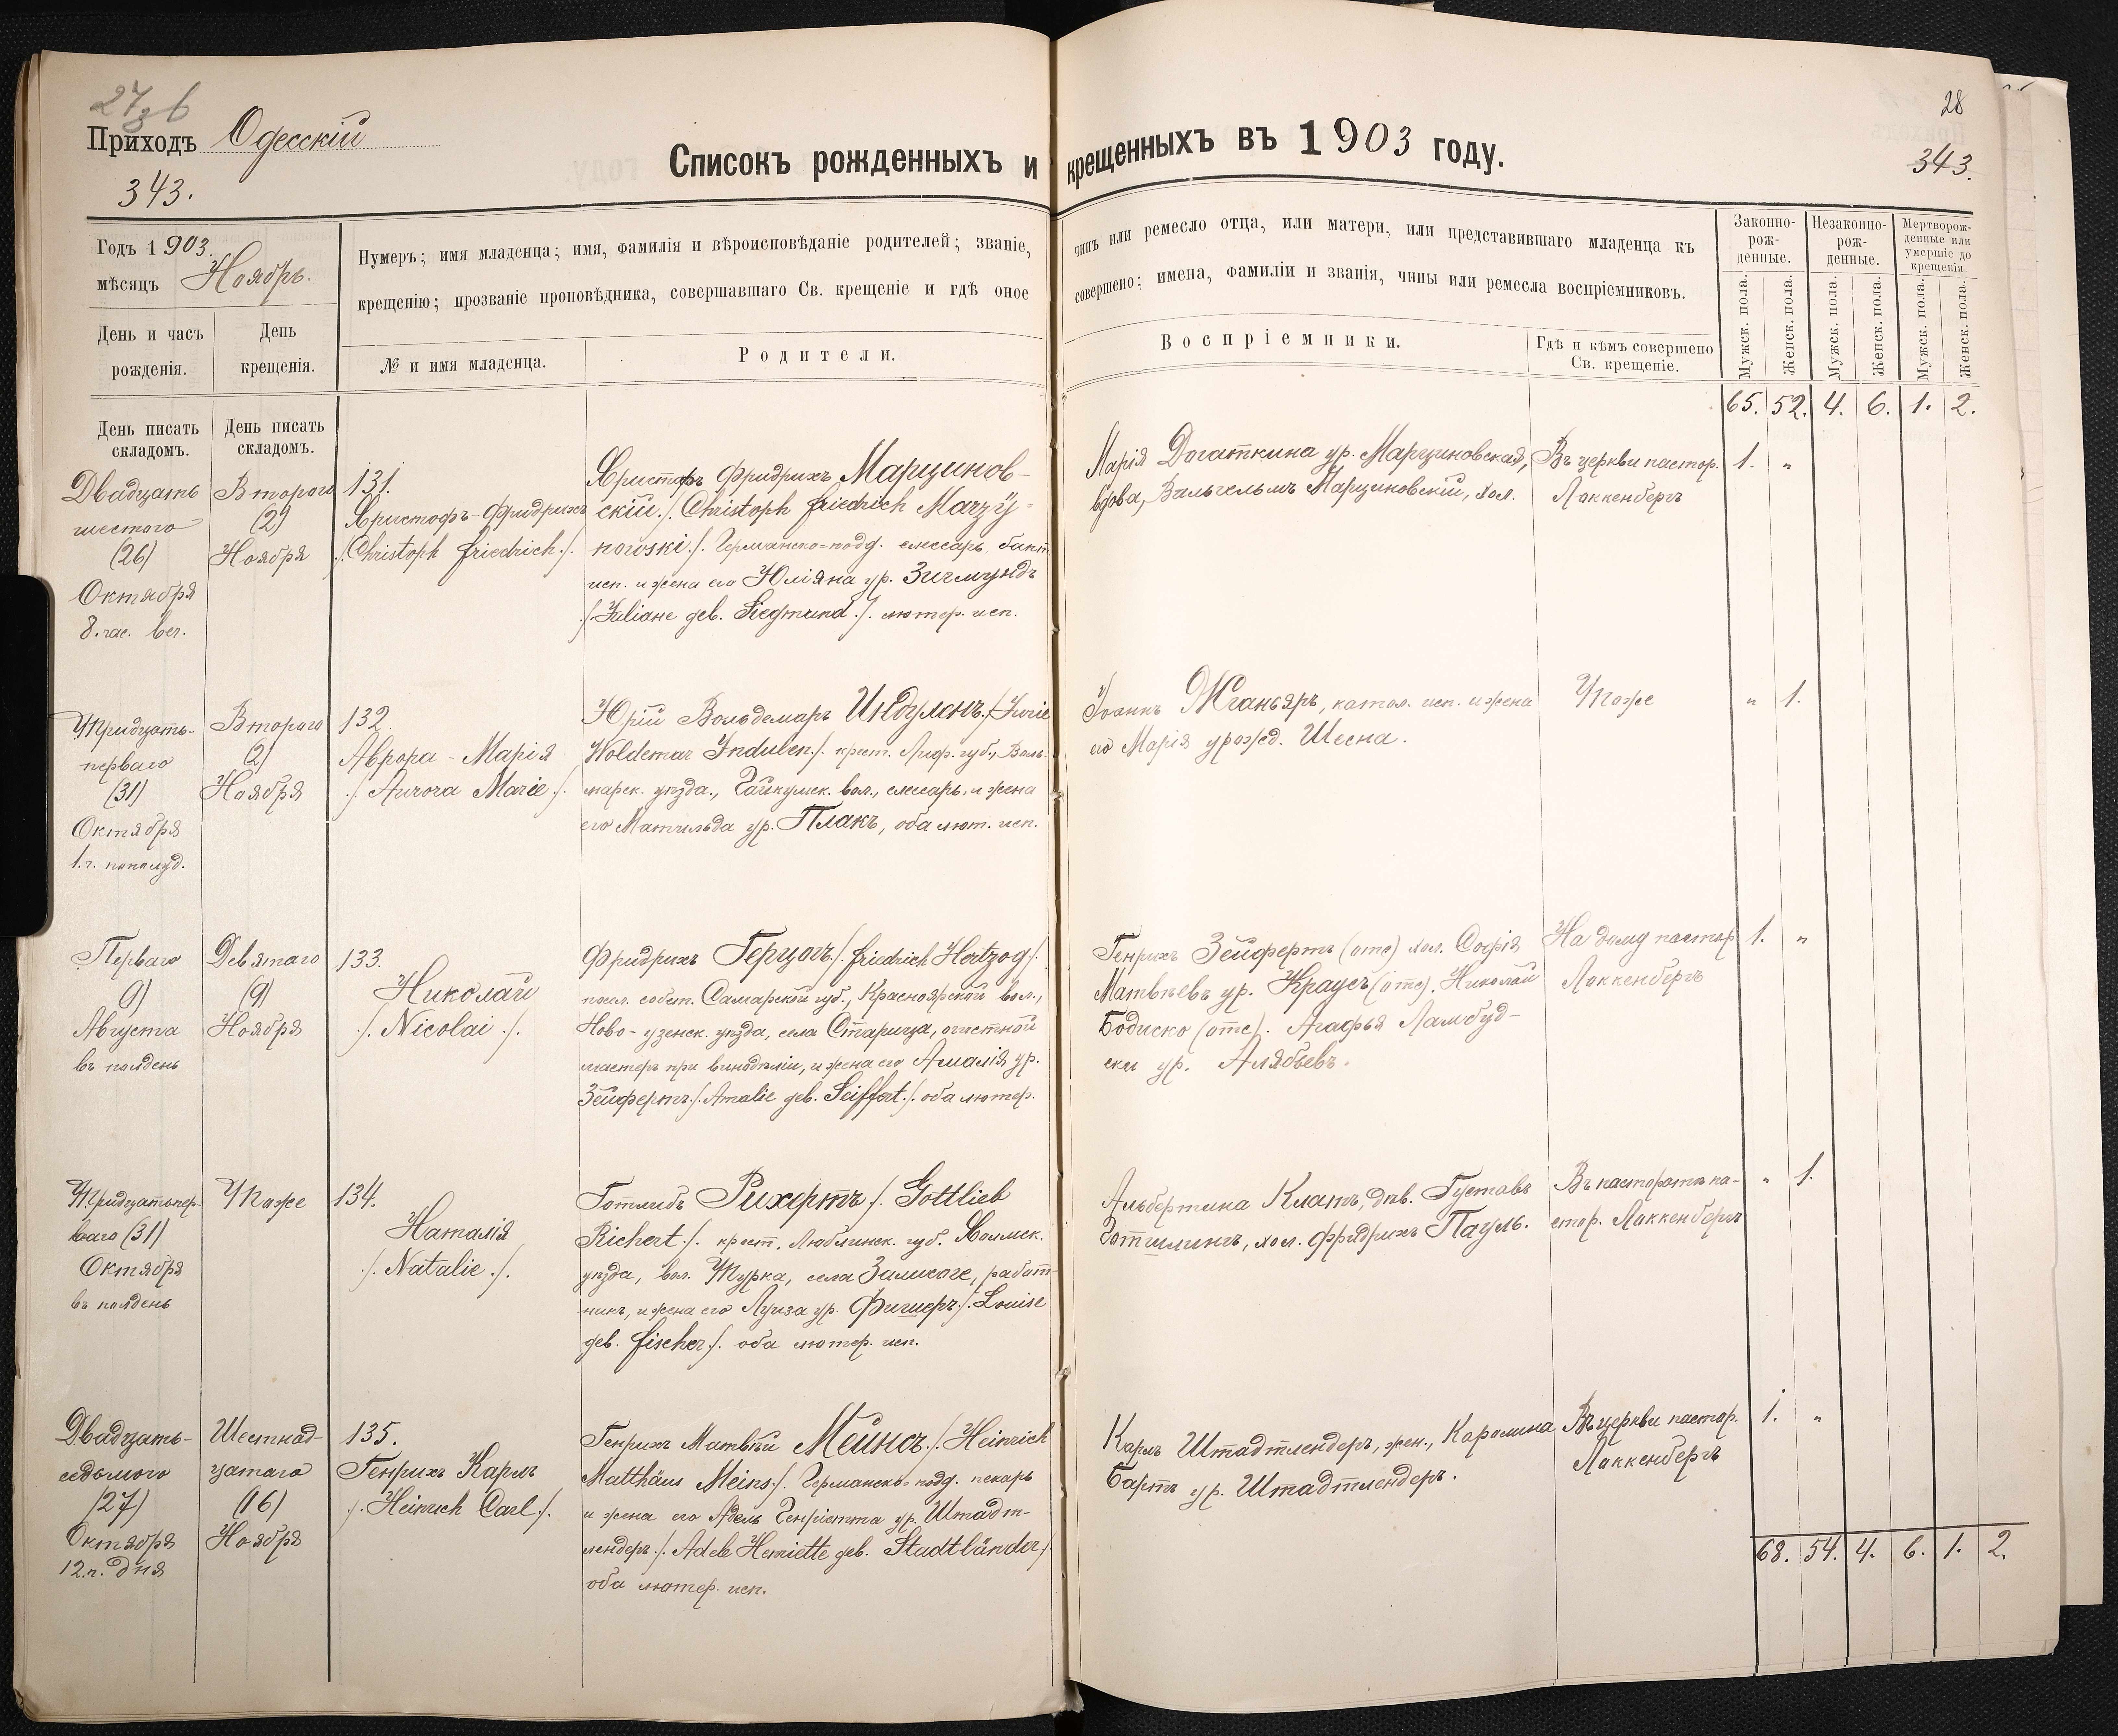 27
28
Приходъ Одесскій
343.
343.
Списокъ рожденныхъ и крещенныхъ въ 1903 году.
Годъ 1903.
мѣсяцъ Ноябрь.
Нумеръ; имя младенца; имя, фамилія и вѣроисповѣданіе родителей; званіе, чинъ или ремесло отца, или матери, или представившаго младенца къ
крещенію; прозваніе проповѣдника, совершавшаго Св. крещеніе и гдѣ оное совершено; имена, фамиліи и званія, чины или ремесла воспріемниковъ.
День и часъ
рожденія.
День
крещенія.
№ и имя младенца.
Родители.
Воспріемники.
Гдѣ и кѣмъ совершено
Св. крещеніе.
Законно-
рож-
денные.
Незаконно-
рож-
денные.
Мертворож-
денные или
умершіе до
крещенія
Мужск. пола.
Женск. пола.
Мужск. пола.
Женск. пола.
Мужск. пола.
Женск. пола.
65. 52. 4. 6. 1. 2.
День писать
складомъ.
День писать
складомъ.
Двадцать
шестого
(26)
Октября
8. час. веч.
Второго
(2)
Ноября
131.
Христофъ-Фридрихъ
./. Christoph Friedrich ./.
Христофъ Фридрихъ Марцинов-
скій ./. Christoph Friedrich Marzy-
nowski ./. Германско-подд. слесарь, бапт.
исп. и жена его Юліяна ур. Зигмундъ
./. Juliane geb. Siegmund ./. лютер. исп.
Марія Догаткина ур. Марциновская,
вдова, Вильгельмъ Марциновскій, хол.
Въ церкви пастор.
Локкенбергъ
1. "
Тридцать-
перваго
(31)
Октября
1. ч. пополуд.
Второго
2)
Ноября
132.
Аврора - Марія
./. Aurora Marie ./.
Юрій Вольдемаръ Индуленъ ./. Jurie
Woldemar Indulen ./. крест. Лиф. губ., Воль-
марск. уѣзда., вол., слесарь, и жена
его Матильда ур. Плакъ, оба лют. исп.
Іоаннъ Жганьяръ, катол. исп. и жена
его Марія урожд. Шесна.
Тоже
" 1.
Перваго
(1)
Августа
въ полдень
Девятаго
(9)
Ноября
133.
Николай
./. Nicolai ./.
Фридрихъ Герцогъ ./. Friedrich Hertzog ./.
посел. собств. Самарской губ., Красноярской вол.,
Ново-узенск. уѣзда, села Старица, очистной
мастеръ при винодѣліи, и жена его Амалія ур.
Зейфертъ ./. Amalie geb. Seiffert ./. оба лютер.
Генрихъ Зейфертъ (отс) хол. Софія
Матвѣевъ ур. Краусъ (отс). Николай
Бодиско (отс). Агафья Ламбуд-
ски ур. Алябьевъ.
На дому пастор
Локкенбергъ
1. "
Тридцатьпер-
ваго (31)
Октября
въ полдень
Тоже
134.
Наталія
./. Natalie ./.
Готлибъ Рихертъ ./. Gottlieb
Richert ./. крест. Люблинск. губ. Холмск.
уѣзда, вол. Турка, села работ-
никъ, и жена его Луиза ур. Фишеръ ./. Louise
geb. Fischer ./. оба лютер. исп.
Альбертина Клатъ, дѣв. Густавъ
Готшлингъ, хол. Фридрихъ Пауль.
Въ пасторатѣ па-
стор. Локкенбергъ
" 1.
Двадцать-
седьмого
(27)
Октября
12. ч. дня
Шестнад-
цатаго
(16)
Ноября
135.
Генрихъ Карлъ
./. Heinrich Carl ./.
Генрихъ Матвѣй Мейнсъ ./. Heinrich
Matthäus Meins ./. Германско-подд. пекарь
и жена его Адель Генріетта ур. Штадт-
лендеръ ./. Adele Henriette geb. Stadtländer ./.
оба лютер. исп.
Карлъ Штадтлендеръ, жен., Каролина
Бартъ ур. Штадтлендеръ.
Въ церкви пастор.
Локкенбергъ
1. "
68. 54. 4. 6. 1. 2.